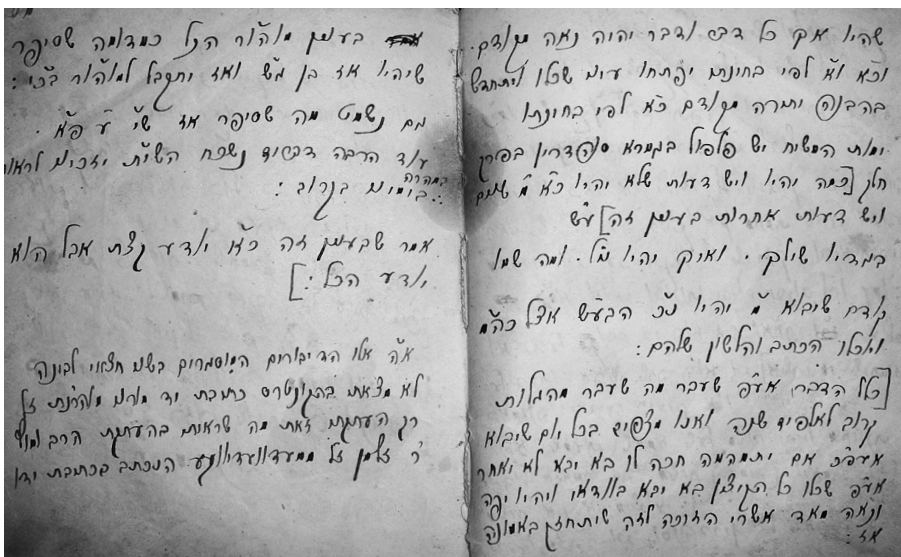 שהיו אך כל דבר ודבר יהיה נאה מקודם.
וכ"א וא' לפי בחינתו יפתחו שכלו ויתחדש
בהבנה יתרה מקודם כ"א לפי בחינתו
ימות המשיח יש פלפול בגמרא סנהדרין בפרק
חלק [כמה יהיו ויש דעות שלא יהיו כ"א מ' שנים
ויש דעות אחרות בענין זה] ע"ש
ואיך יהיו ומה שמו
קודם שיבוא יהיו ג"כ הבע"ש אצל
הכתב והלשון שלהם:
[כלל הדבר אע"פ שעבר מה שעבר מהגלות
קרוב לאלפים שנה ואנו מצפים בכל יום שיבוא
אעפ"כ אם יתמהמה חכה לו בא יבא לא יאחר
אע"פ שכלו כל הקיצין בא יבא בוודאי ויהיו יפה
ונאה מאד אשרי הזוכה לזה שיתחזק באמונה
אז:
בענין הנ"ל כמדומה שסיפר
שיהיו אז בן ואז יתקבל
גם נשמט מה שסיפר אז
עוד הרבה דברים נשכח השי"ת יזכינו לראות
במהרה
בימינו בקרוב:
אמר שבענין זה כ"א יודע קצת אבל הוא
יודע הכל:]
א"ה אלו הדיבורים המוסגרים בשני חצאי לבנה
לא מצאתי בהקונטרס כתיבת יד מורנו מוהרנ"ת ז"ל
רק העתקתי זאת מה שראיתי בהעתקת הרב
ר' זלמן ז"ל ממעדוועדיוועקע הנכתב בכתיבת ידו